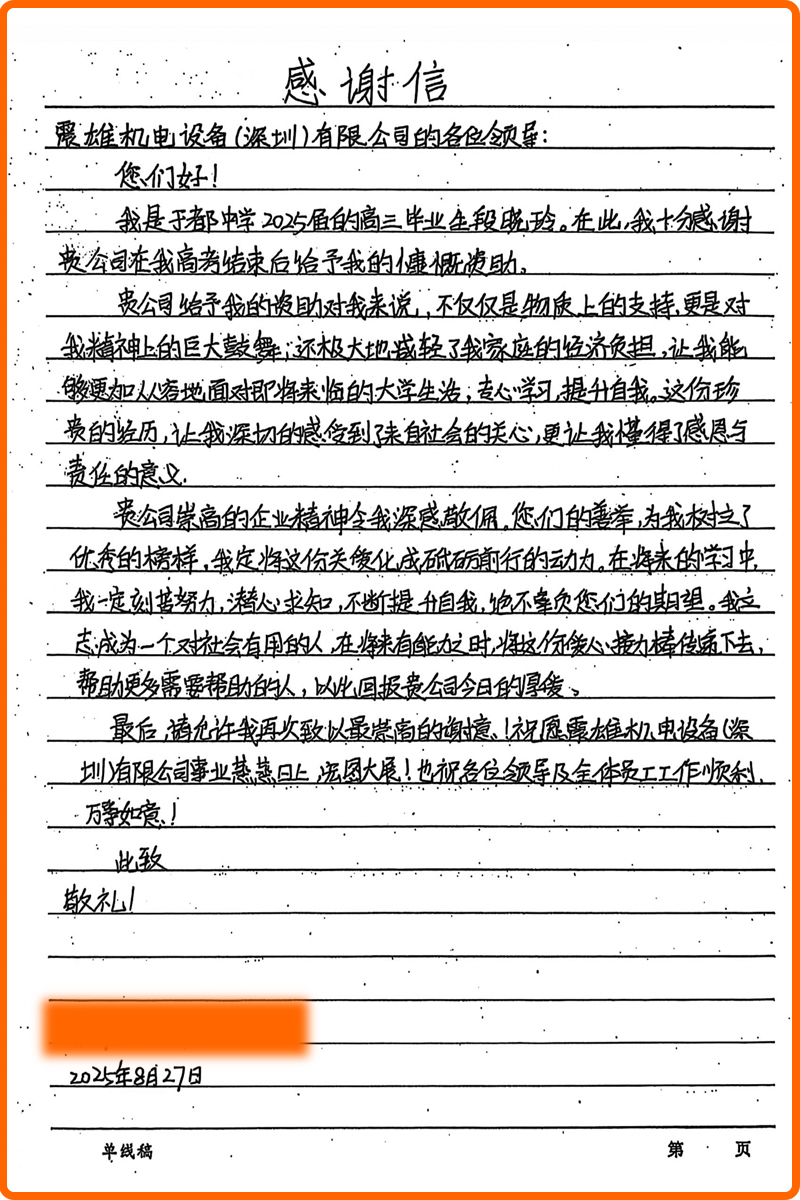 感谢信
震雄机电设备(深圳)有限公司的各位领导:
您们好!
我是于都中学2025届的高三毕业生段晓玲。在此,我十分感谢
贵公司在我高考结束后给予我的慷慨资助。
贵公司给予我的资助对我来说,,不仅仅是物质上的支持,更是对
我精神上的巨大鼓舞;还极大地减轻了我家庭的经济负担,让我能
够更加从容地面对即将来临的大学生活,专心学习,提升自我。这份珍
贵的经历,让我深切的感受到了来自社会的关心,更让我懂得了感恩与
责任的意义.
贵公司崇高的企业精神令我深感敬佩。您们的善举,为我树立了
优秀的榜样,我定将这份关爱化成砥砺前行的动力。在将来的学习中,
我一定刻苦努力,潜心求知,不断提升自我,绝不辜负您们的期望。我立
志成为一个对社会有用的人,在将来有能力之时,将这份爱心接力棒传递下去,
帮助更多需要帮助的人,以此回报贵公司今日的厚爱。
最后,请允许我再次致以最崇高的谢意!祝愿震雄机电设备(深
圳)有限公司事业蒸蒸日上,宏图大展!也祝各位领导及全体员工工作顺利,
万事如意!
此致
敬礼!
2025年8月27日
单线稿 第 页